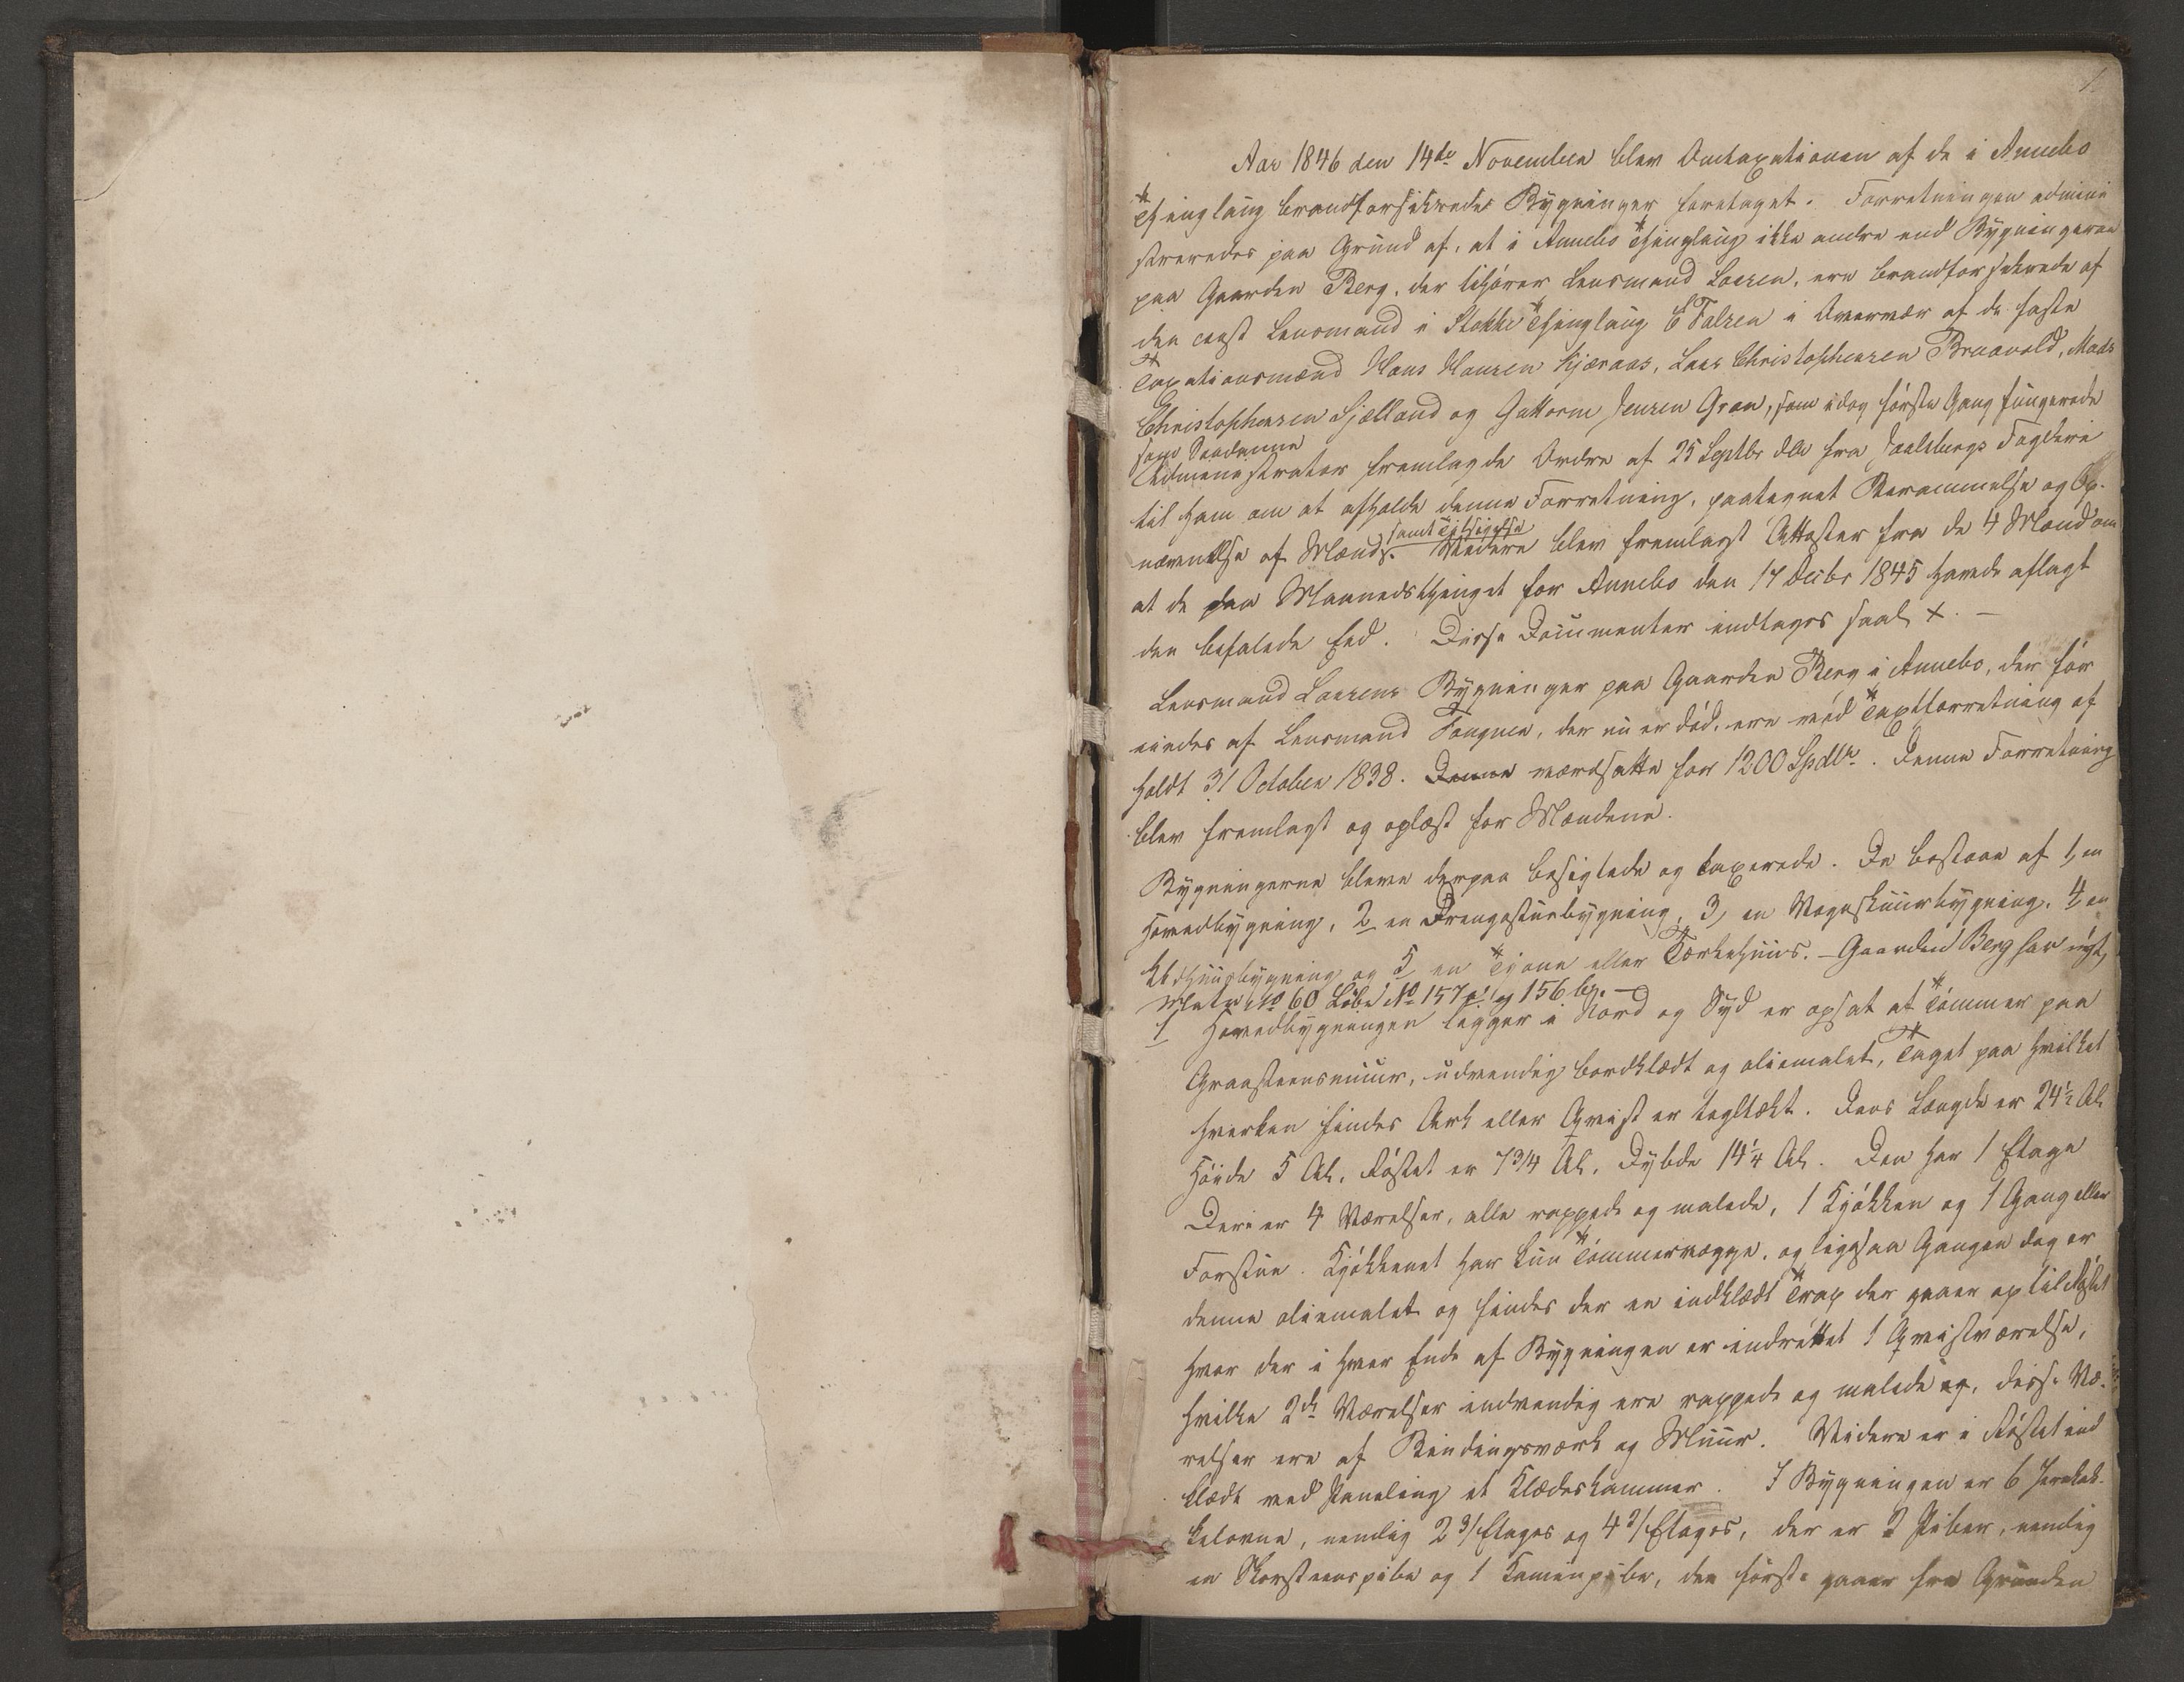 1.
Aar 1846 den 14de November blev Omtaxationen af de i Annebo
Thinglaug brandforsikrede Bygninger foretaget. Forretningen admini
streredes paa Grund af, at i Annebo Thinglaug ikke andre end Bygningerne
paa Gaarden Berg, der tilhører Lensmand Larsen, ere brandforsikrede af
den const Lensmand i Stokke Thinglaug E Falsen i Overvær af de faste
Taxationsmænd Hans Hansen Kjæraas, Lars Christophersen Bruavold, Mads
Christophersen Sjælland og Guttorm Jensen Gran, som idag første Gang fungerede
som Saadanne
Administrator fremlagde Ordre af 25 Septbr dA fra Jarlsbergs Fogderi
til ham om at afholde denne Forretning, paategnet Berammelse og Op-
nævnelse af Mænd samt Tilsigelse. Videre blev fremlagt Attester fra de 4 Mænd om
at de paa Maanedsthinget for Annebo den 17 Decbr 1845 havde aflagt
den befalede Eed. Disse Documenter indtages saal. X. —
Lensmand Larsens Bygninger paa Gaarden Berg i Annebo, der før
eiedes af Lensmand Fougner, der nu er død, ere ved Taxtforretning af
holdt 31 October 1838. Denne værdsatte for 1200 Spdlr. Denne Forretning
blev fremlagt og oplæst for Mændene.
Bygningerne bleve derpaa besigtede og taxerede. De bestaae af 1, en
Hovedbygning, 2 en Drengestuebygning, 3, en Vognskuurbygning, 4 en
Udhuusbygning og 5 en Tjone eller Tørkehuus. — Gaarden Berg har nyt
Matr No 60 Løbe No 157 a. og 156 b. —
1 Hovedbygningen ligger i Nord og Syd er opsat af Tømmer paa
Graasteensmuur, udvendig bordklædt og oliemalet, Taget paa hvilket
hverken findes Ark eller Qvist er tegltækt. Dens Længde er 24½ Al.
Høide 5 Al. Røstet er 7 3/4 Al. Dybde 14¼ Al. Den har 1 Etage
Deri er 4 Værelser, alle rappede og malede, 1 Kjøkken og 1 Gang eller
Forstue. Kjøkkenet har kun Tømmervægge, og ligesaa Gangen dog er
denne oliemalet og findes der en indklædt Trap der gaaer op til Røstet
hvor der i hver Ende af Bygningen er indrettet 1 Qvistværelse,
hvilke 2de Værelser indvendig ere rappede og malede og, disse Væ-
relser ere af Bindingsværk og Muur. Videre er i Røstet ind
klædt med Paneling et Klædeskammer. I Bygningen er 6 Jernkak-
kelovne, nemlig 2 3/Etages og 4 2/Etages, der er 2 Piber, nemlig
en Skorsteenspibe og 1 Kaminpibe, den første gaaer fra Grunden